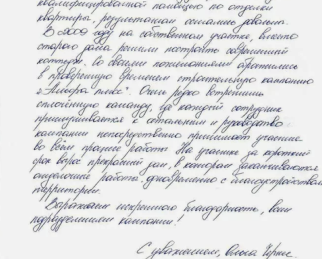 квалифицированной помощью по отделке
квартиры, результатами остались довольны.
В 2009 году на собственном участке, вместо
старого дома решили построить современный
коттедж. Со своими пожеланиями обратились
в проверенную временем строительную компанию
Очень редко встретишь
сплочённую команду, где каждый сотрудник
прислушивается к остальным и руководство
компании непосредственно принимает участие
во всём процессе работ. На участке за короткий
срок вырос прекрасный дом, в котором заканчиваются
отделочные работы одновременно с благоустройством
территории.
Выражаем искреннюю благодарность, всем
подразделениям компании!
С уважением, семья